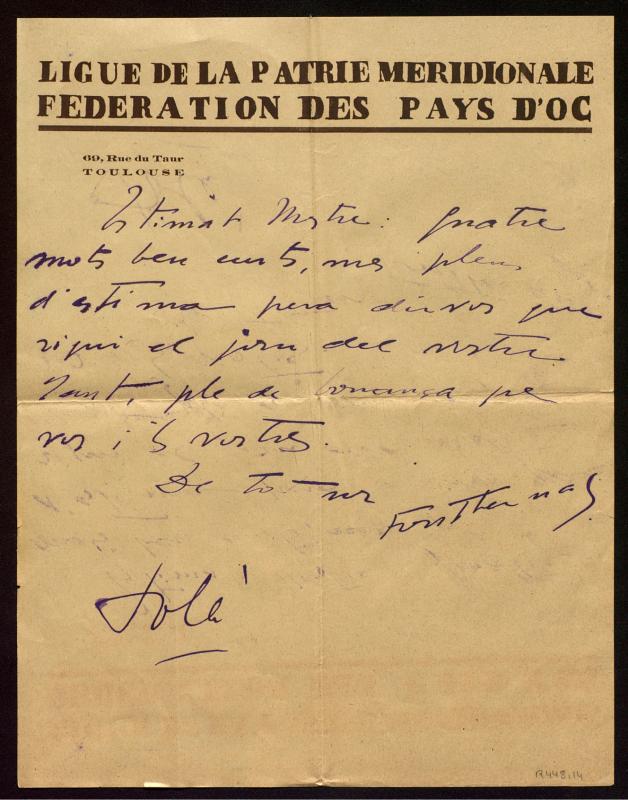 LIGUE DE LA PATRIE MERIDIONALE
FEDERATION DES PAYS D'OC
69, Rue du Taur
TOULOUSE
Estimat Mestre: Quatre
mots ben curts, mes plens
d'estima pera dirvos que
sigui el jorn del vostre
Sant, ple de bonança pe
vos i ls vostres.
De tot cor
Solá
R.448,14